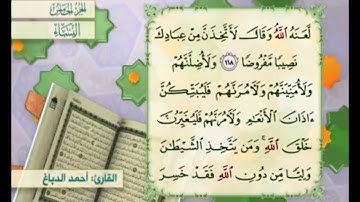 الجزء الخامس
النساء
لَّعَنَهُ اللَّهُ وَقَالَ لَأَتَّخِذَنَّ مِنْ عِبَادِكَ
نَصِيبًا مَّفْرُوضًا ١١٨ وَلَأُضِلَّنَّهُمْ
وَلَأُمَنِّيَنَّهُمْ وَلَآمُرَنَّهُمْ فَلَيُبَتِّكُنَّ
ءَاذَانَ الْأَنْعَـٰمِ وَلَآمُرَنَّهُمْ فَلَيُغَيِّرُنَّ
خَلْقَ اللَّهِ وَمَن يَتَّخِذِ الشَّيْطَـٰنَ
وَلِيًّا مِّن دُونِ اللَّهِ فَقَدْ خَسِرَ
القارئ: أحمد الدباغ